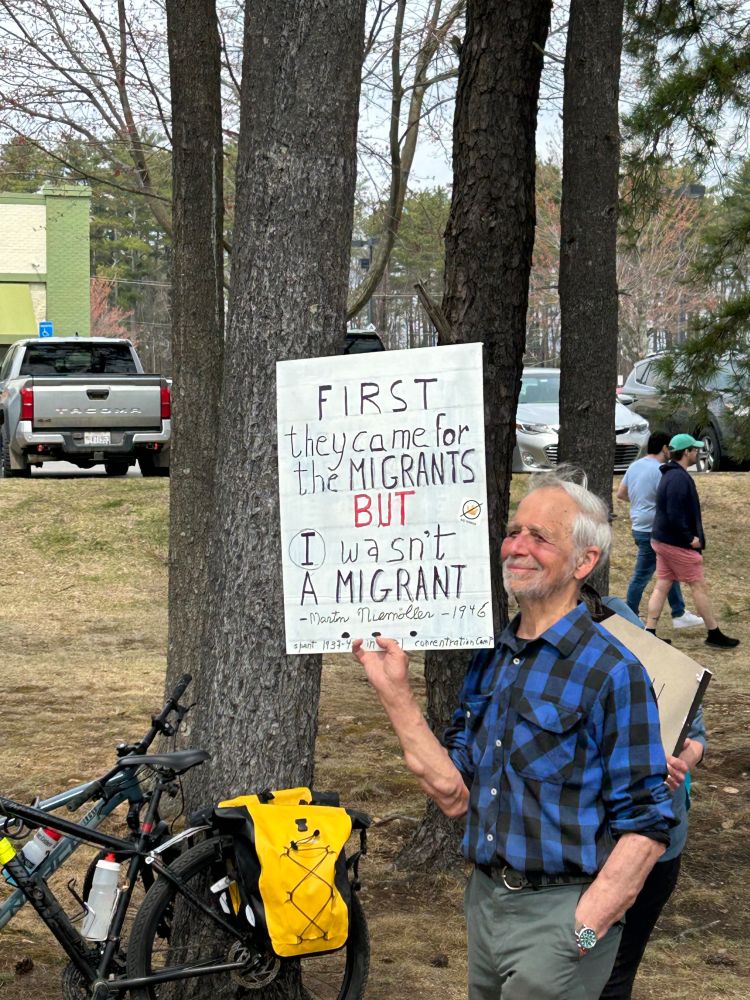 FIRST
they came for
the MIGRANTS
BUT
I wasn't
A MIGRANT
- Martin Niemöller - 1946
spent 1937-45 in concentration Camp
TACOMA